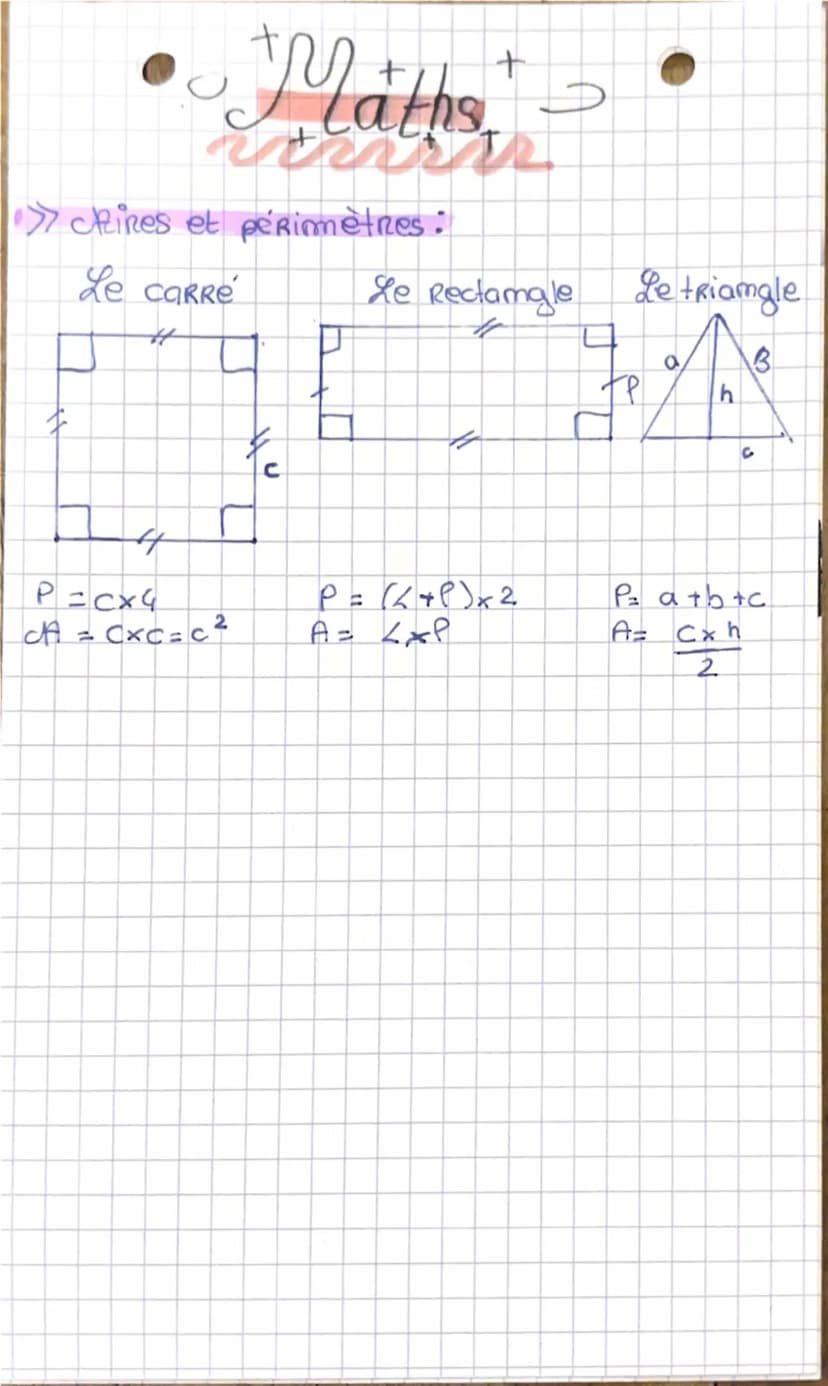 Maths
>> Aires et périmètres :
Le carré Le Rectangle Le triangle
a B
l h
c c
P = c×4 P = (L+l)×2 P= a+b+c
A = c×c=c² A= L×l A= c×h
2